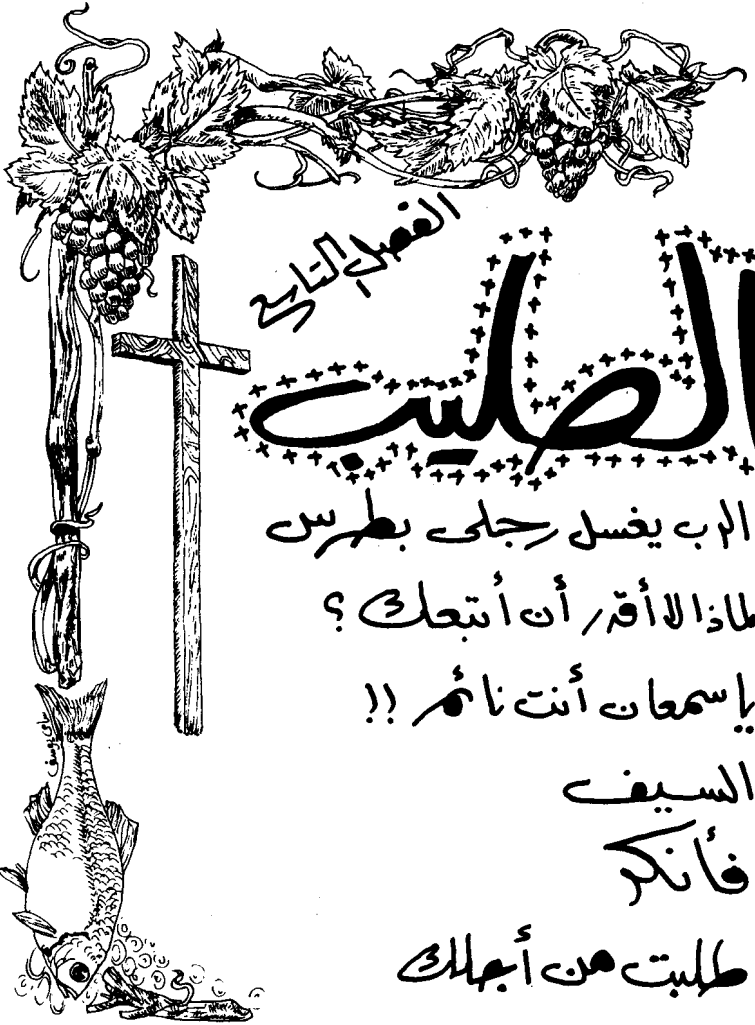 الفصل التاسع
الصليب
الرب يغسل رجلى بطرس
لماذا لا أقدر أن أتبعك ؟
يا سمعان أنت نائم !!
السيف
فأنكر
طلبت من أجلك